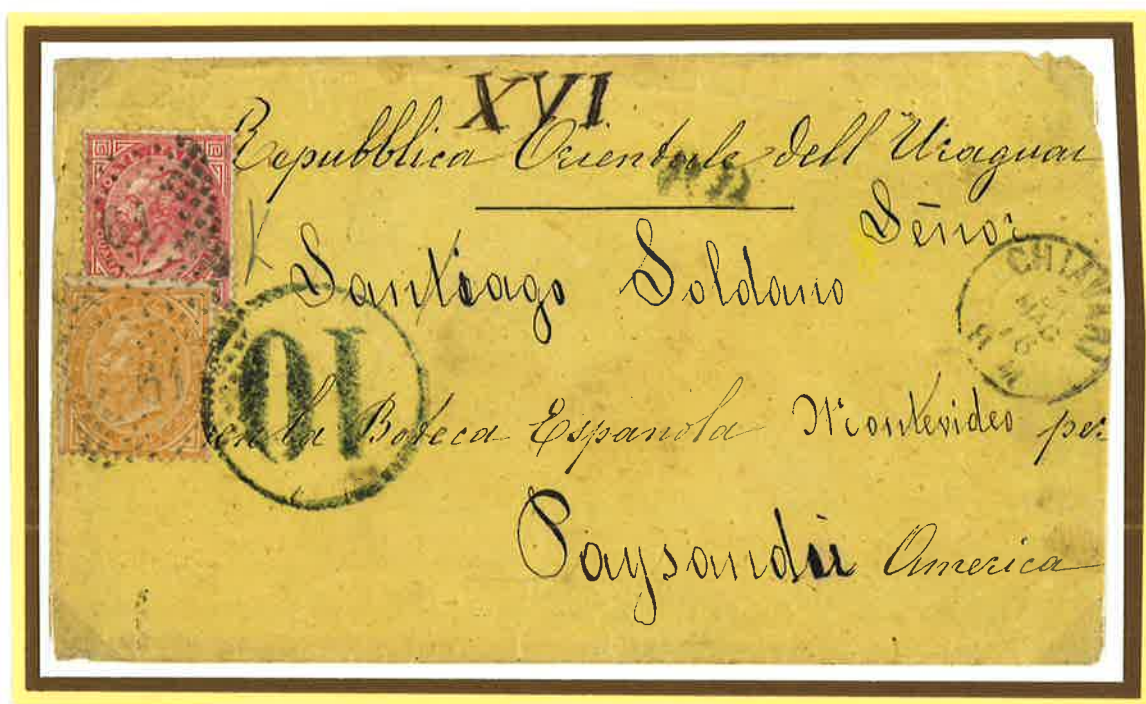 XVI
Repubblica Orientale dell' Uraguai
PD
Señor
Santiago Soldano
CHIAVARI
10
en la Boteca Espanola Montevideo per
Paysandù America